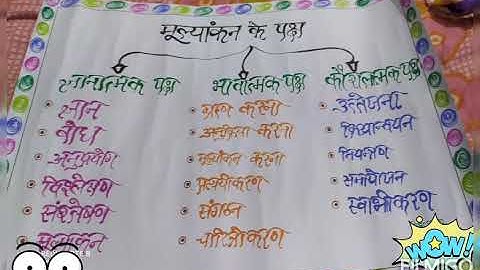 मूल्यांकन के पक्ष
ज्ञानात्मक पक्ष भावात्मक पक्ष कौशलात्मक पक्ष
ज्ञान ग्रहण करना उत्तेजना
बोध अनुक्रिया करना क्रियान्वयन
अनुप्रयोग मूल्यांकन करना नियंत्रण
विश्लेषण प्रत्ययीकरण समायोजन
संश्लेषण संगठन स्वाभीकरण
मूल्यांकन
WOW!